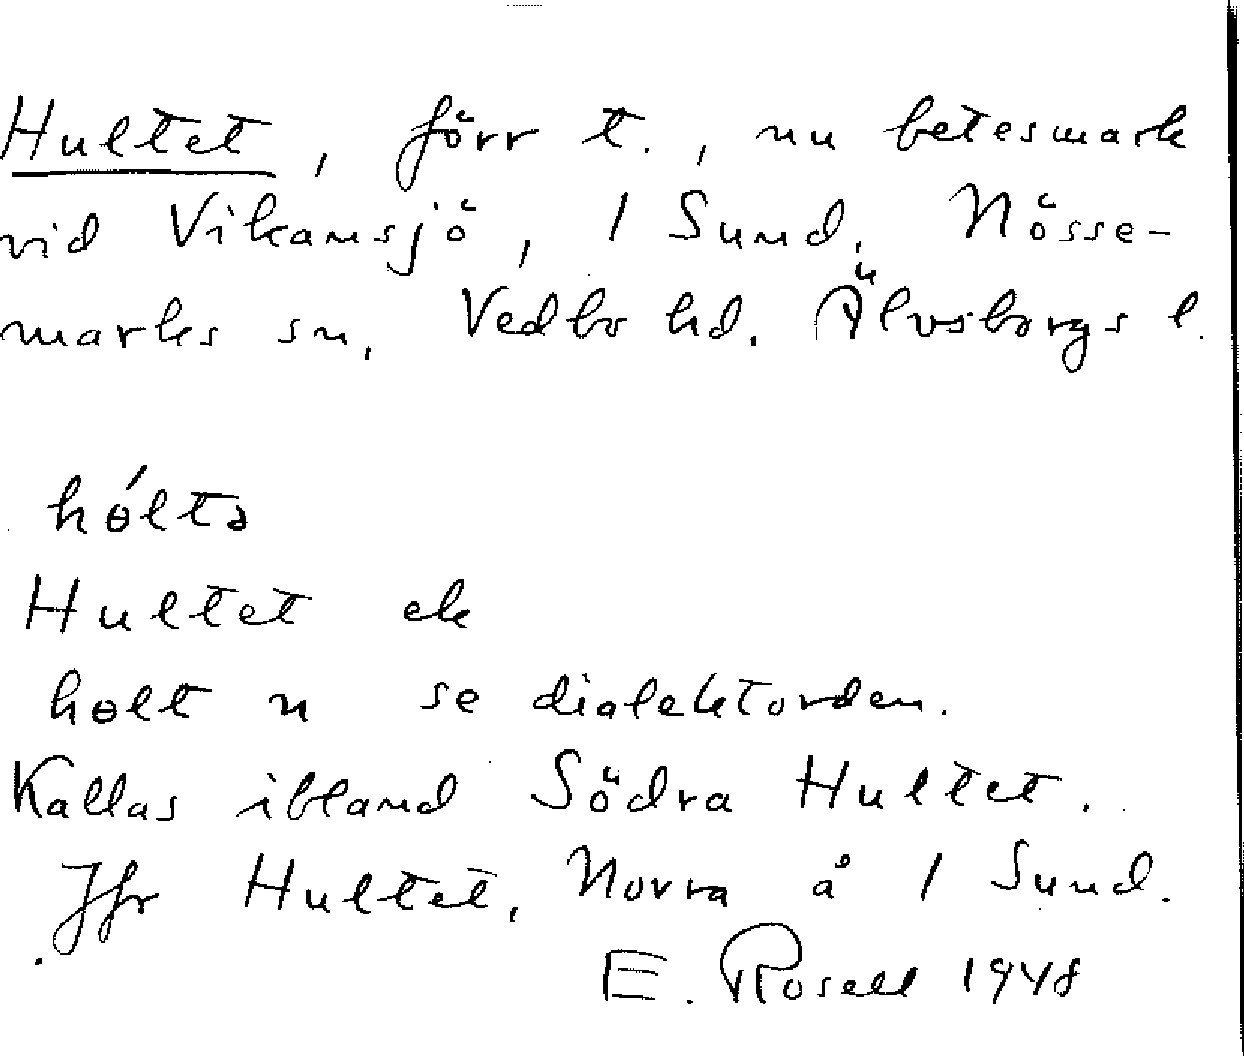 Hultet, förr t., nu betesmark
vid Vikansjö, 1 Sund, Nösse-
marks sn, Vedbo hd. Älvsborgs l.
hɵ́ltə
Hultet ek
hɵlt n se dialektorden.
Kallas ibland Södra Hultet.
Jfr Hultet, Norra å 1 Sund.
E. Rosell 1948